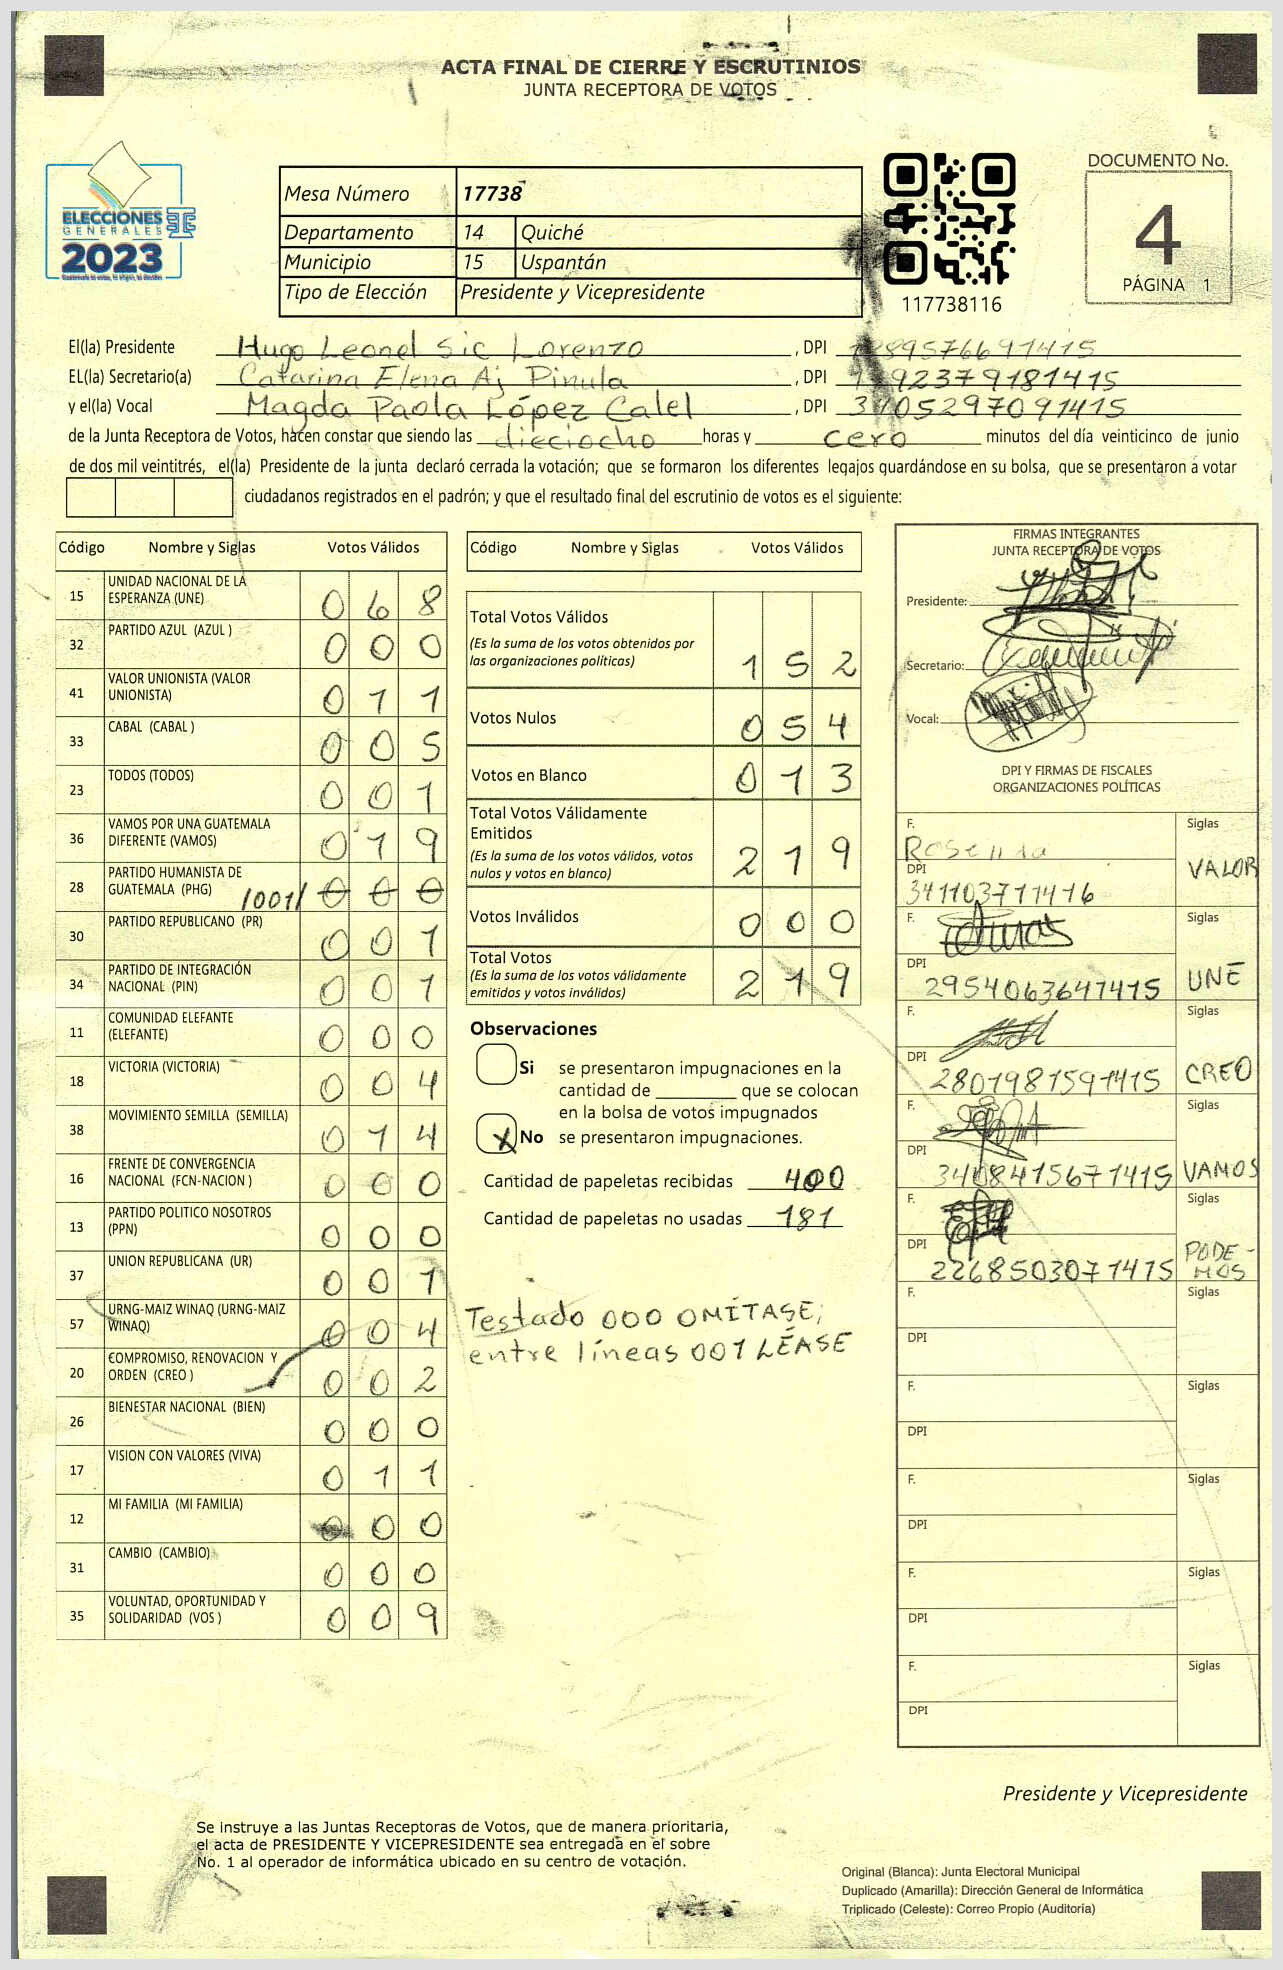 ACTA FINAL DE CIERRE Y ESCRUTINIOS
JUNTA RECEPTORA DE VOTOS
ELECCIONES
GENERALES
2023
Mesa Número 17738
Departamento 14 Quiché
Municipio 15 Uspantán
Tipo de Elección Presidente y Vicepresidente
117738116
DOCUMENTO No.
4
PÁGINA 1
El(la) Presidente Hugo Leonel Sic Lorenzo , DPI
EL(la) Secretario(a) Catarina Elena Aj Pinula , DPI
y el(la) Vocal Magda Paola López Calel , DPI
de la Junta Receptora de Votos, hacen constar que siendo las dieciocho horas y cero minutos del día veinticinco de junio
de dos mil veintitrés, el(la) Presidente de la junta declaró cerrada la votación; que se formaron los diferentes legajos guardándose en su bolsa, que se presentaron a votar
ciudadanos registrados en el padrón; y que el resultado final del escrutinio de votos es el siguiente:
Código Nombre y Siglas Votos Válidos
15 UNIDAD NACIONAL DE LA ESPERANZA (UNE) 068
32 PARTIDO AZUL (AZUL ) 000
41 VALOR UNIONISTA (VALOR UNIONISTA) 011
33 CABAL (CABAL ) 005
23 TODOS (TODOS) 001
36 VAMOS POR UNA GUATEMALA DIFERENTE (VAMOS) 019
28 PARTIDO HUMANISTA DE GUATEMALA (PHG) /001/ 000
30 PARTIDO REPUBLICANO (PR) 001
34 PARTIDO DE INTEGRACIÓN NACIONAL (PIN) 001
11 COMUNIDAD ELEFANTE (ELEFANTE) 000
18 VICTORIA (VICTORIA) 004
38 MOVIMIENTO SEMILLA (SEMILLA) 014
16 FRENTE DE CONVERGENCIA NACIONAL (FCN-NACION ) 000
13 PARTIDO POLITICO NOSOTROS (PPN) 000
37 UNION REPUBLICANA (UR) 001
57 URNG-MAIZ WINAQ (URNG-MAIZ WINAQ) 004
20 COMPROMISO, RENOVACION Y ORDEN (CREO ) 002
26 BIENESTAR NACIONAL (BIEN) 000
17 VISION CON VALORES (VIVA) 011
12 MI FAMILIA (MI FAMILIA) 000
31 CAMBIO (CAMBIO) 000
35 VOLUNTAD, OPORTUNIDAD Y SOLIDARIDAD (VOS ) 009
Código Nombre y Siglas Votos Válidos
Total Votos Válidos
(Es la suma de los votos obtenidos por
las organizaciones políticas) 152
Votos Nulos 054
Votos en Blanco 013
Total Votos Válidamente
Emitidos
(Es la suma de los votos válidos, votos
nulos y votos en blanco) 219
Votos Inválidos 000
Total Votos
(Es la suma de los votos válidamente
emitidos y votos inválidos) 219
Observaciones
Si se presentaron impugnaciones en la
cantidad de ________ que se colocan
en la bolsa de votos impugnados
X No se presentaron impugnaciones.
Cantidad de papeletas recibidas 400
Cantidad de papeletas no usadas 181
Testado 000 OMÍTASE;
entre líneas 001 LÉASE
FIRMAS INTEGRANTES
JUNTA RECEPTORA DE VOTOS
Presidente:
Secretario:
Vocal:
DPI Y FIRMAS DE FISCALES
ORGANIZACIONES POLÍTICAS
F. Siglas
VALOR
DPI 341103711416
F. Siglas
DPI 2954063641415 UNE
F. Siglas
DPI 2801981591415 CREO
F. Siglas
DPI 3408415671415 VAMOS
F. Siglas
DPI 2268503071415 PODE-
MOS
F. Siglas
DPI
F. Siglas
DPI
F. Siglas
DPI
F. Siglas
DPI
F. Siglas
DPI
Presidente y Vicepresidente
Se instruye a las Juntas Receptoras de Votos, que de manera prioritaria,
el acta de PRESIDENTE Y VICEPRESIDENTE sea entregada en el sobre
No. 1 al operador de informática ubicado en su centro de votación.
Original (Blanca): Junta Electoral Municipal
Duplicado (Amarilla): Dirección General de Informática
Triplicado (Celeste): Correo Propio (Auditoría)